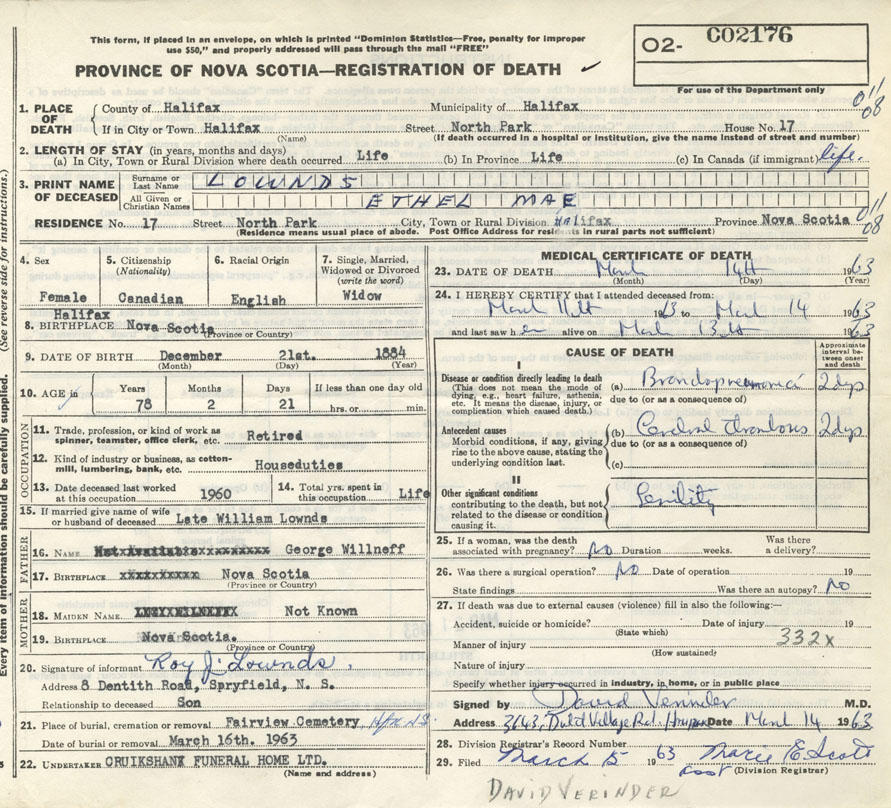 This form, if placed in an envelope, on which is printed "Dominion Statistics—Free, penalty for improper
use $50," and properly addressed will pass through the mail "FREE"
PROVINCE OF NOVA SCOTIA—REGISTRATION OF DEATH ✓
O2- C02176
For use of the Department only
1. PLACE OF DEATH
County of Halifax Municipality of Halifax
If in City or Town Halifax Street North Park House No. 17
(Name) (If death occurred in a hospital or institution, give the name instead of street and number)
011
08
2. LENGTH OF STAY (in years, months and days)
(a) In City, Town or Rural Division where death occurred Life (b) In Province Life (c) In Canada (if immigrant) life.
3. PRINT NAME OF DECEASED
Surname or Last Name LOWNDS
All Given or Christian Names ETHEL MAE
RESIDENCE No. 17 Street North Park City, Town or Rural Division Halifax Province Nova Scotia
(Residence means usual place of abode. Post Office Address for residents in rural parts not sufficient)
011
08
4. Sex
Female
5. Citizenship
(Nationality)
Canadian
6. Racial Origin
English
7. Single, Married,
Widowed or Divorced
(write the word)
Widow
Halifax
8. BIRTHPLACE Nova Scotia
(Province or Country)
9. DATE OF BIRTH December 21st. 1884
(Month) (Day) (Year)
10. AGE in
Years 78
Months 2
Days 21
If less than one day old
hrs. or min.
OCCUPATION
11. Trade, profession, or kind of work as
spinner, teamster, office clerk, etc. Retired
12. Kind of industry or business, as cotton-
mill, lumbering, bank, etc. Houseduties
13. Date deceased last worked
at this occupation 1960
14. Total yrs. spent in
this occupation Life
15. If married give name of wife
or husband of deceased Late William Lownds
FATHER
16. NAME George Willneff
17. BIRTHPLACE Nova Scotia
(Province or Country)
MOTHER
18. MAIDEN NAME Not Known
19. BIRTHPLACE Nova Scotia.
(Province or Country)
20. Signature of informant Roy J. Lownds.
Address 8 Dentith Road, Spryfield, N. S.
Relationship to deceased Son
21. Place of burial, cremation or removal Fairview Cemetery
Date of burial or removal March 16th. 1963
22. UNDERTAKER CRUIKSHANK FUNERAL HOME LTD.
(Name and address)
MEDICAL CERTIFICATE OF DEATH
23. DATE OF DEATH March 14th 1963
(Month) (Day) (Year)
24. I HEREBY CERTIFY that I attended deceased from:
March 11th 1963 to March 14 1963
and last saw her alive on March 13th 1963
CAUSE OF DEATH
Approximate interval between onset and death
I
Disease or condition directly leading to death
(This does not mean the mode of
dying, e.g., heart failure, asthenia,
etc. It means the disease, injury, or
complication which caused death.)
(a) Bronchopneumonia 2 dys
due to (or as a consequence of)
Antecedent causes
Morbid conditions, if any, giving
rise to the above cause, stating the
underlying condition last.
(b) Cerebral thrombosis 2 dys
due to (or as a consequence of)
(c)
II
Other significant conditions
contributing to the death, but not
related to the disease or condition
causing it.
Senility
25. If a woman, was the death
associated with pregnancy? No Duration weeks. Was there
a delivery?
26. Was there a surgical operation? No Date of operation 19
State findings Was there an autopsy? No
27. If death was due to external causes (violence) fill in also the following:—
Accident, suicide or homicide? Date of injury 19
(State which)
Manner of injury 332x
(How sustained)
Nature of injury
Specify whether injury occurred in industry, in home, or in public place
Signed by David Verinder M.D.
Address 3643, Dutch Village Rd. Date March 14 1963
28. Division Registrar's Record Number
29. Filed March 15 1963 Marie E. Scott
(Division Registrar)
DAVID VERINDER
(See reverse side for instructions.)
Every item of information should be carefully supplied.